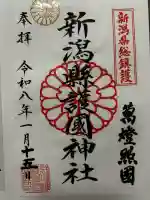 新潟県総鎮護
萬燈照國
新潟縣護國神社
奉拝
令和八年
月十五日